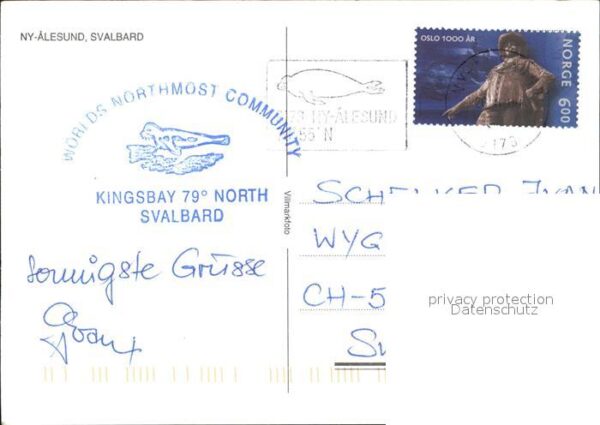 NY-ÅLESUND, SVALBARD
WORLDS NORTHMOST COMMUNITY
KINGSBAY 79° NORTH
SVALBARD
NY-ÅLESUND
55' N
OSLO 1000 ÅR
NORGE 6.00
9173
Villmarkfoto
sonnigste Grüsse
WYG
CH-5
privacy protection
Datenschutz